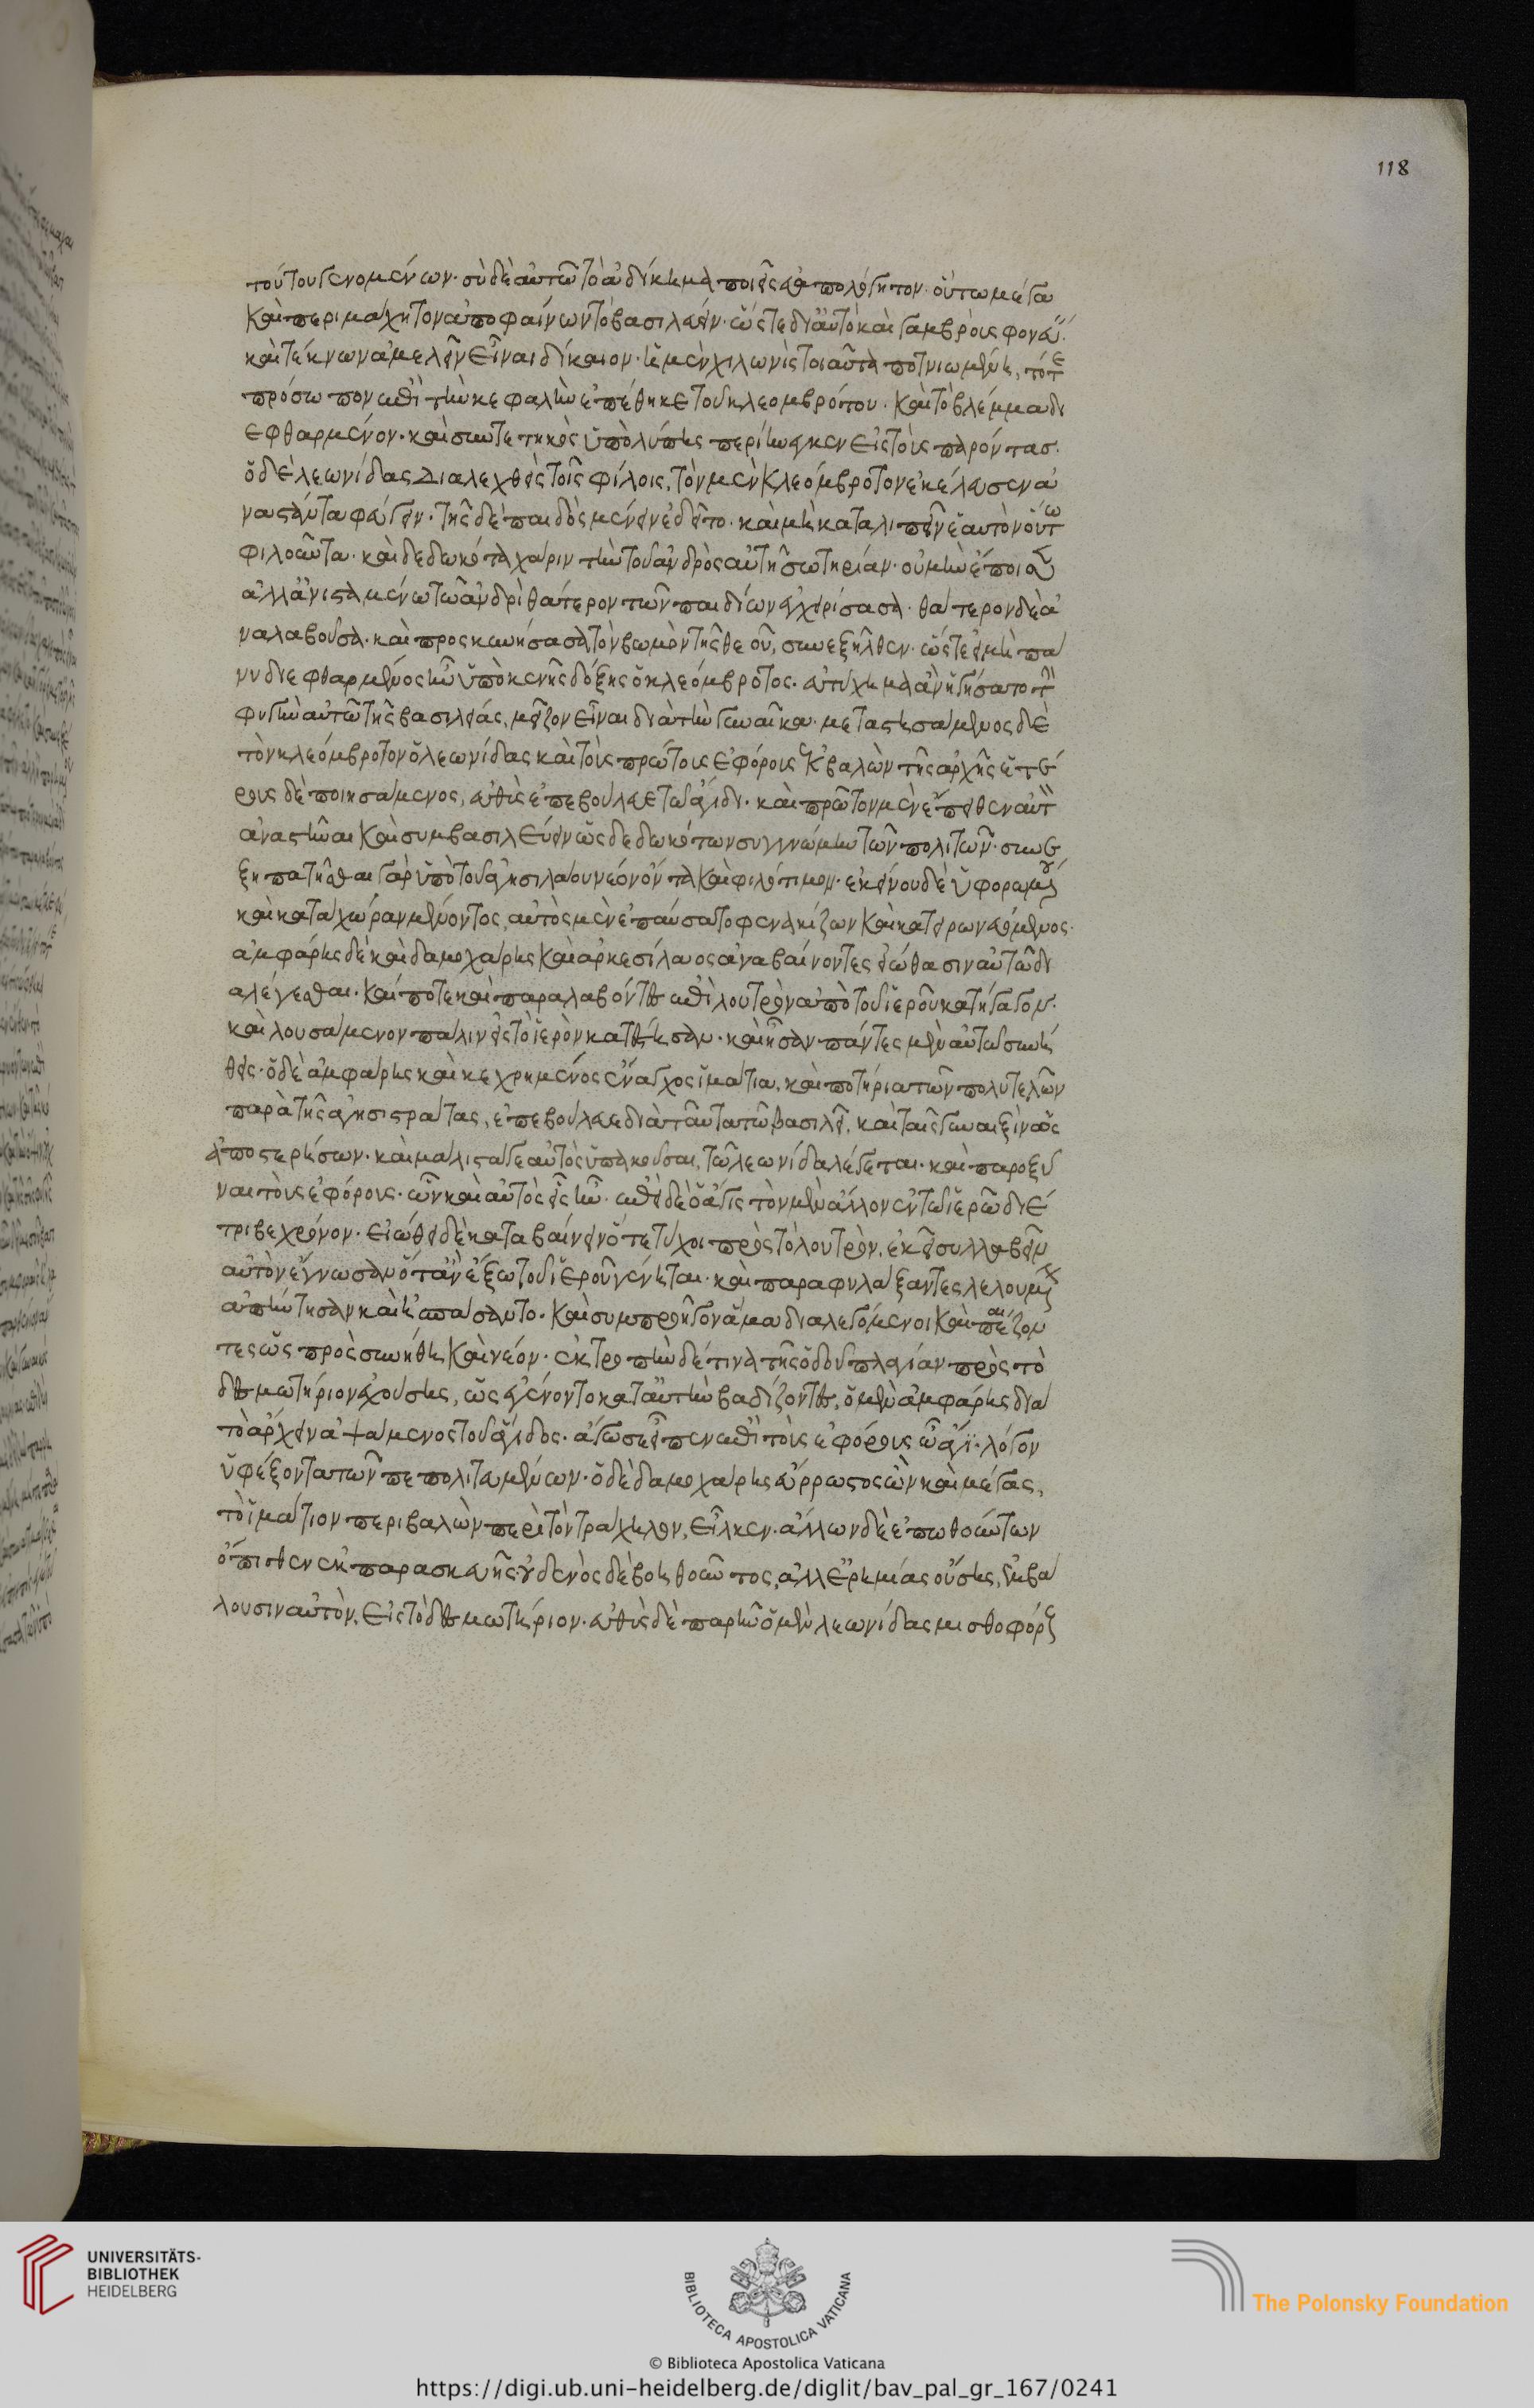 118
τούτου γενομένων· σὺ δὲ αὐτῶ τὸ ἀδίκημα ποιεῖς εὐαπολόγητον· οὕτω μέγα
καὶ περιμάχητον ἀποφαίνων τὸ βασιλεύειν· ὥςτε δι αὐτὸ καὶ γαμβροὺς φονεύειν·
καὶ τέκνων ἀμελεῖν εἶναι δίκαιον· ἡ μὲν χιλωνὶς τοιαῦτα ποτνιωμένη, τό τε
πρόσωπον ἐπὶ τὴν κεφαλὴν ἐπέθηκε τοῦ κλεομβρότου· καὶ τὸ βλέμμα δι
εφθαρμένον· καὶ συντετηκὸς ὑπὸ λύπης περιήνεγκεν εἰς τοὺς παρόντας·
ὁ δὲ λεωνίδας διαλεχθεὶς τοῖς φίλοις, τὸν μὲν κλεόμβροτον ἐκέλευσεν ἀ
ναστάντα φεύγειν· τῆς δὲ παιδὸς μένειν ἐδεῖτο· καὶ μὴ καταλιπεῖν ἑαυτὸν οὕτω
φιλοῦντα· καὶ δεδωκότα χάριν τὴν τοῦ ἀνδρὸς αὐτῆ σωτηρίαν· οὐ μὴν ἔπεισεν
ἀλλ ἀνισταμένω τῶ ἀνδρὶ θάτερον τῶν παιδίων ἐγχειρίσασα· θάτερον δὲ ἀ
ναλαβοῦσα· καὶ προσκυνήσασα τὸν βωμὸν τῆς θεοῦ, συνεξῆλθεν· ὥςτε εἰ μὴ πά
νυ διεφθαρμένος ἦν ὑπὸ κενῆς δόξης ὁ κλεόμβροτος· εὐτύχημα ἂν ἡγήσατο τὴν
φυγὴν αὐτῶ τῆς βασιλείας, μεῖζον εἶναι διὰ τὴν γυναῖκα· μεταστησάμενος δὲ
τὸν κλεόμβροτον ὁ λεωνίδας καὶ τοὺς πρώτους ἐφόρους ἐκβαλὼν τῆς ἀρχῆς ἑτέ
ρους δὲ ποιησάμενος, εὐθὺς ἐπεβούλευε τῶ ἄγιδι· καὶ πρῶτον μὲν ἔπειθεν αὐτὸν
ἀναστῆναι καὶ συμβασιλεύειν ὡς δεδωκότων συγγνώμην τῶν πολιτῶν· συνε
ξηπατῆσθαι γὰρ ὑπὸ τοῦ ἀγησιλάου νέον ὄντα καὶ φιλότιμον· ἐκείνου δὲ ὑφορωμένου
καὶ κατὰ χώραν μένοντος, αὐτὸς μὲν ἐπαύσατο φενακίζων καὶ κατειρωνευόμενος·
ἀμφάρης δὲ καὶ δαμοχάρης καὶ ἀρκεσίλαος ἀναβαίνοντες εἰώθασιν αὐτῶ δι
αλέγεσθαι· καί ποτε καὶ παραλαβόντες ἐπὶ λουτρὸν ἀπὸ τοῦ ἱεροῦ κατήγαγον·
καὶ λουσάμενον πάλιν εἰς τὸ ἱερὸν κατέστησαν· καὶ ἦσαν πάντες μὲν αὐτοῦ συνή
θεις· ὁ δὲ ἀμφάρης καὶ κεχρημένος ἔναγχος ἱμάτια, καὶ ποτήρια τῶν πολυτελῶν
παρὰ τῆς ἀγησιστράτας, ἐπεβούλευε διὰ ταῦτα τῶ βασιλεῖ, καὶ ταῖς γυναιξὶν ὡς
ἀποστερήσων· καὶ μάλιστά γε αὐτὸς ὑπακοῦσαι, τῶ λεωνίδα λέγεται· καὶ παροξῦ
ναι τοὺς ἐφόρους· ὧν καὶ αὐτὸς εἷς ἦν· ἐπεὶ δὲ ὁ ἆγις τὸν μὲν ἄλλον ἐν τῶ ἱερῶ διέ
τριβε χρόνον· εἰώθει δὲ καταβαίνειν ὅτε τύχοι πρὸς τὸ λουτρὸν, ἐκεῖ συλλαβεῖν
αὐτὸν ἔγνωσαν ὅταν ἔξω τοῦ ἱεροῦ γένηται· καὶ παραφυλάξαντες λελουμένον
ἀπήντησαν καὶ ἠσπάσαντο· καὶ συμπροῆγον ἅμα διαλεγόμενοι καὶ παίζον
τες ὡς πρὸς συνήθη καὶ νέον· ἐκτροπὴν δέ τινα τῆς ὁδοῦ πλαγίαν πρὸς τὸ
δεσμωτήριον ἐχούσης, ὡς ἐγένοντο κατ αὐτὴν βαδίζοντες, ὁ μὲν ἀμφάρης διὰ
τὸ ἄρχειν ἁψάμενος τοῦ ἄγιδος· ἄγω σε εἶπεν ἐπὶ τοὺς ἐφόρους ὦ ἄγι· λόγον
ὑφέξοντα τῶν πεπολιτευμένων· ὁ δὲ δαμοχάρης εὔρρωστος ὢν καὶ μέγας,
τὸ ἱμάτιον περιβαλὼν περὶ τὸν τράχηλον, εἷλκεν· ἄλλων δὲ ἐπωθούντων
ὄπισθεν ἐκ παρασκευῆς οὐδενὸς δὲ βοηθοῦντος, ἀλλ ἐρημίας οὔσης, ἐμβά
λουσιν αὐτὸν, εἰς τὸ δεσμωτήριον· εὐθὺς δὲ παρῆν ὁ μὲν λεωνίδας μισθοφόρους
UNIVERSITÄTS-
BIBLIOTHEK
HEIDELBERG
BIBLIOTECA APOSTOLICA VATICANA
The Polonsky Foundation
© Biblioteca Apostolica Vaticana
https://digi.ub.uni-heidelberg.de/diglit/bav_pal_gr_167/0241